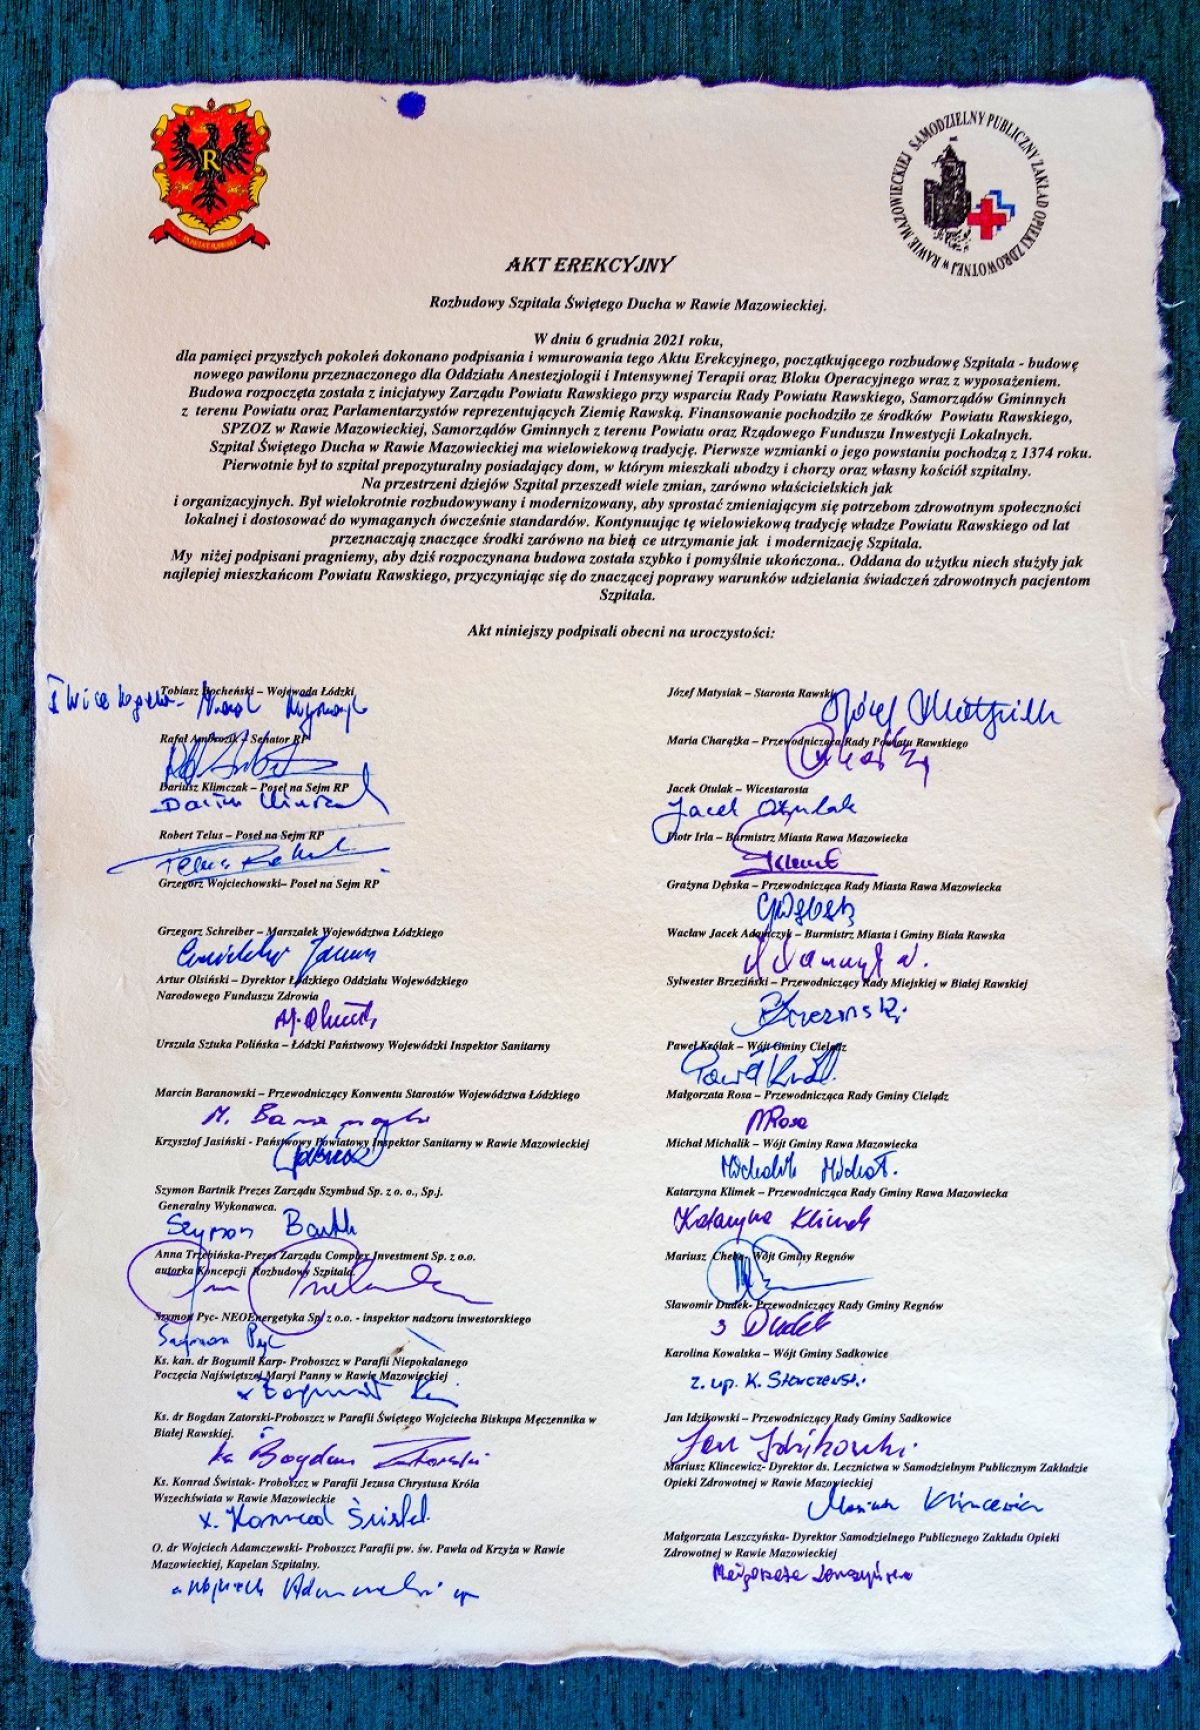 POWIAT RAWSKI
SAMODZIELNY PUBLICZNY ZAKŁAD OPIEKI ZDROWOTNEJ w RAWIE MAZOWIECKIEJ
AKT EREKCYJNY
Rozbudowy Szpitala Świętego Ducha w Rawie Mazowieckiej.
W dniu 6 grudnia 2021 roku,
dla pamięci przyszłych pokoleń dokonano podpisania i wmurowania tego Aktu Erekcyjnego, początkującego rozbudowę Szpitala - budowę
nowego pawilonu przeznaczonego dla Oddziału Anestezjologii i Intensywnej Terapii oraz Bloku Operacyjnego wraz z wyposażeniem.
Budowa rozpoczęta została z inicjatywy Zarządu Powiatu Rawskiego przy wsparciu Rady Powiatu Rawskiego, Samorządów Gminnych
z terenu Powiatu oraz Parlamentarzystów reprezentujących Ziemię Rawską. Finansowanie pochodziło ze środków Powiatu Rawskiego,
SPZOZ w Rawie Mazowieckiej, Samorządów Gminnych z terenu Powiatu oraz Rządowego Funduszu Inwestycji Lokalnych.
Szpital Świętego Ducha w Rawie Mazowieckiej ma wielowiekową tradycję. Pierwsze wzmianki o jego powstaniu pochodzą z 1374 roku.
Pierwotnie był to szpital prepozyturalny posiadający dom, w którym mieszkali ubodzy i chorzy oraz własny kościół szpitalny.
Na przestrzeni dziejów Szpital przeszedł wiele zmian, zarówno właścicielskich jak
i organizacyjnych. Był wielokrotnie rozbudowywany i modernizowany, aby sprostać zmieniającym się potrzebom zdrowotnym społeczności
lokalnej i dostosować do wymaganych ówcześnie standardów. Kontynuując tę wielowiekową tradycję władze Powiatu Rawskiego od lat
przeznaczają znaczące środki zarówno na bieżące utrzymanie jak i modernizację Szpitala.
My niżej podpisani pragniemy, aby dziś rozpoczynana budowa została szybko i pomyślnie ukończona.. Oddana do użytku niech służyły jak
najlepiej mieszkańcom Powiatu Rawskiego, przyczyniając się do znaczącej poprawy warunków udzielania świadczeń zdrowotnych pacjentom
Szpitala.
Akt niniejszy podpisali obecni na uroczystości:
Tobiasz Bocheński – Wojewoda Łódzki
Rafał Ambrozik – Senator RP
Dariusz Klimczak – Poseł na Sejm RP
Robert Telus – Poseł na Sejm RP
Grzegorz Wojciechowski– Poseł na Sejm RP
Grzegorz Schreiber – Marszałek Województwa Łódzkiego
Artur Olsiński – Dyrektor Łódzkiego Oddziału Wojewódzkiego
Narodowego Funduszu Zdrowia
Urszula Sztuka Polińska – Łódzki Państwowy Wojewódzki Inspektor Sanitarny
Marcin Baranowski – Przewodniczący Konwentu Starostów Województwa Łódzkiego
Krzysztof Jasiński - Państwowy Powiatowy Inspektor Sanitarny w Rawie Mazowieckiej
Szymon Bartnik Prezes Zarządu Szymbud Sp. z o. o., Sp.j.
Generalny Wykonawca.
Anna Trzebińska-Prezes Zarządu Complex Investment Sp. z o.o.
autorka Koncepcji Rozbudowy Szpitala.
Szymon Pyc- NEOEnergetyka Sp. z o.o. - inspektor nadzoru inwestorskiego
Szymon Pyc
Ks. kan. dr Bogumił Karp- Proboszcz w Parafii Niepokalanego
Poczęcia Najświętszej Maryi Panny w Rawie Mazowieckiej
Ks. dr Bogdan Zatorski-Proboszcz w Parafii Świętego Wojciecha Biskupa Męczennika w
Białej Rawskiej.
ks. Bogdan Zatorski
Ks. Konrad Świstak- Proboszcz w Parafii Jezusa Chrystusa Króla
Wszechświata w Rawie Mazowieckie
x. Konrad Świstak
O. dr Wojciech Adamczewski- Proboszcz Parafii pw. św. Pawła od Krzyża w Rawie
Mazowieckiej, Kapelan Szpitalny.
Józef Matysiak – Starosta Rawski
Józef Matysiak
Maria Charążka – Przewodnicząca Rady Powiatu Rawskiego
Jacek Otulak – Wicestarosta
Jacek Otulak
Piotr Irla – Burmistrz Miasta Rawa Mazowiecka
Grażyna Dębska – Przewodnicząca Rady Miasta Rawa Mazowiecka
Wacław Jacek Adamczyk – Burmistrz Miasta i Gminy Biała Rawska
Sylwester Brzeziński – Przewodniczący Rady Miejskiej w Białej Rawskiej
Paweł Królak – Wójt Gminy Cielądz
Małgorzata Rosa – Przewodnicząca Rady Gminy Cielądz
MRosa
Michał Michalik – Wójt Gminy Rawa Mazowiecka
Michalik Michał.
Katarzyna Klimek – Przewodnicząca Rady Gminy Rawa Mazowiecka
Katarzyna Klimek
Mariusz Cheba- Wójt Gminy Regnów
Sławomir Dudek- Przewodniczący Rady Gminy Regnów
S Dudek
Karolina Kowalska – Wójt Gminy Sadkowice
z. up. K. Starczewski
Jan Idzikowski – Przewodniczący Rady Gminy Sadkowice
Jan Idzikowski
Mariusz Klincewicz- Dyrektor ds. Lecznictwa w Samodzielnym Publicznym Zakładzie
Opieki Zdrowotnej w Rawie Mazowieckiej
Mariusz Klincewicz
Małgorzata Leszczyńska- Dyrektor Samodzielnego Publicznego Zakładu Opieki
Zdrowotnej w Rawie Mazowieckiej
Małgorzata Leszczyńska